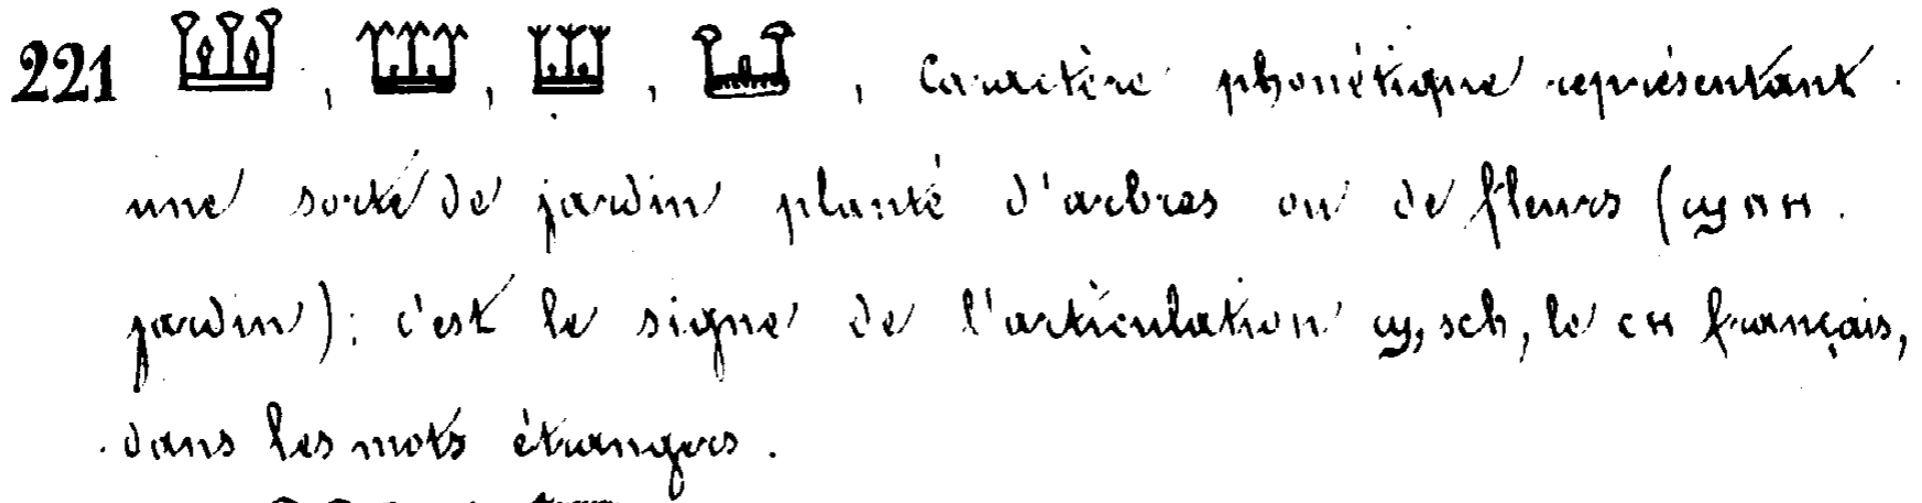 221 𓆷, 𓆷, 𓆷, 𓆷, Caractère phonétique représentant
une sorte de jardin planté d'arbres ou de fleurs (ϣⲏⲏ.
jardin): c'est le signe de l'articulation ϣ, sch, le CH français,
dans les mots étrangers.